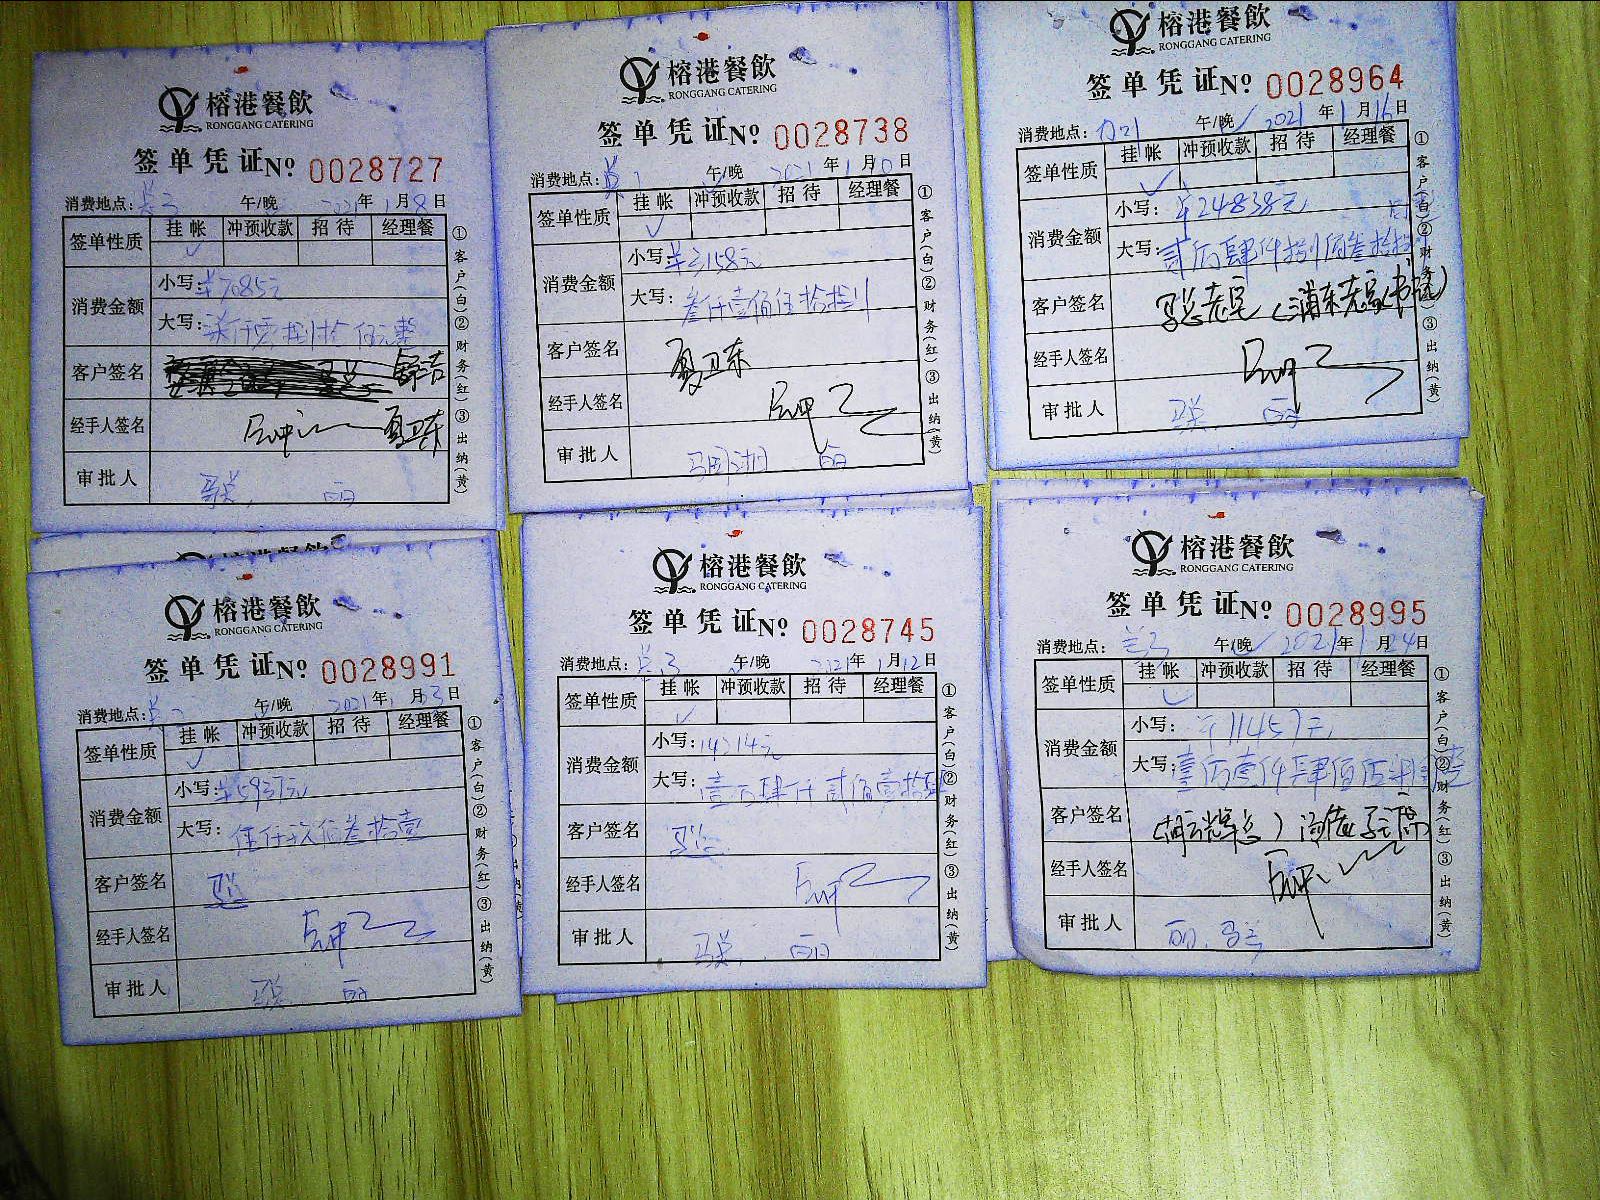 榕港餐飲
RONGGANG CATERING
签单凭证№ 0028727
消费地点: 午/晚 2021年1月8日
签单性质 挂帐 冲预收款 招待 经理餐
✓
消费金额 小写: ¥7085元
大写: 柒仟零捌拾伍元整
客户签名 舒吉
经手人签名 夏卫东
审批人
①客户(白)②财务(红)③出纳(黄)
榕港餐飲
RONGGANG CATERING
签单凭证№ 0028738
消费地点: 午/晚 2021年1月10日
签单性质 挂帐 冲预收款 招待 经理餐
✓
消费金额 小写: ¥3158元
大写: 叁仟壹佰伍拾捌
客户签名 夏卫东
经手人签名
审批人
①客户(白)②财务(红)③出纳(黄)
榕港餐飲
RONGGANG CATERING
签单凭证№ 0028964
消费地点: 午/晚✓ 2021年1月16日
签单性质 挂帐 冲预收款 招待 经理餐
✓
消费金额 小写: ¥24838元
大写: 贰万肆仟捌佰叁拾捌
客户签名
经手人签名
审批人
①客户(白)②财务(红)③出纳(黄)
榕港餐飲
榕港餐飲
RONGGANG CATERING
签单凭证№ 0028991
消费地点: 午/晚 2021年1月23日
签单性质 挂帐 冲预收款 招待 经理餐
✓
消费金额 小写: ¥5931元
大写: 伍仟玖佰叁拾壹
客户签名
经手人签名
审批人
①客户(白)②财务(红)③出纳(黄)
榕港餐飲
RONGGANG CATERING
签单凭证№ 0028745
消费地点: 午/晚 2021年1月12日
签单性质 挂帐 冲预收款 招待 经理餐
✓
消费金额 小写: 14214元
大写: 壹万肆仟贰佰壹拾肆
客户签名
经手人签名
审批人
①客户(白)②财务(红)③出纳(黄)
榕港餐飲
RONGGANG CATERING
签单凭证№ 0028995
消费地点: 午/晚✓ 2021年1月24日
签单性质 挂帐 冲预收款 招待 经理餐
✓
消费金额 小写: ¥11457元
大写: 壹万壹仟肆佰伍拾
客户签名
经手人签名
审批人
①客户(白)②财务(红)③出纳(黄)